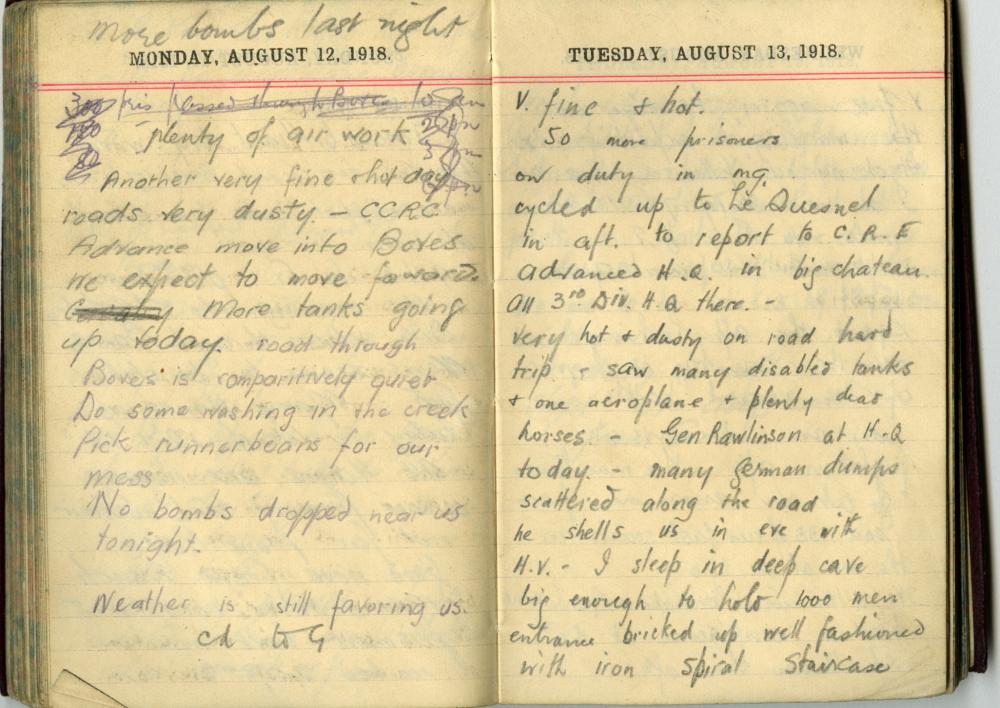 More bombs last night
MONDAY, AUGUST 12, 1918.
300 pris passed through Boves
plenty of air work
Another very fine & hot day
roads very dusty. - C.C.R.C.
Advance move into Boves
we expect to move forward.
More tanks going
up today. road through
Boves is comparitively quiet
Do some washing in the creek
Pick runner beans for our
mess
No bombs dropped near us
tonight.
Weather is still favoring us.
TUESDAY, AUGUST 13, 1918.
V. fine & hot.
50 more prisoners
on duty in mg.
cycled up to Le Quesnel
in aft. to report to C.R.E
advanced H.Q. in big chateau.
All 3rd Div. H.Q there. -
very hot & dusty on road hard
trip - saw many disabled tanks
& one aeroplane & plenty dead
horses. - Gen Rawlinson at H.Q
today. - many german dumps
scattered along the road
he shells us in eve with
H.V. - I sleep in deep cave
big enough to hold 1000 men
entrance bricked up well fashioned
with iron spiral staircase